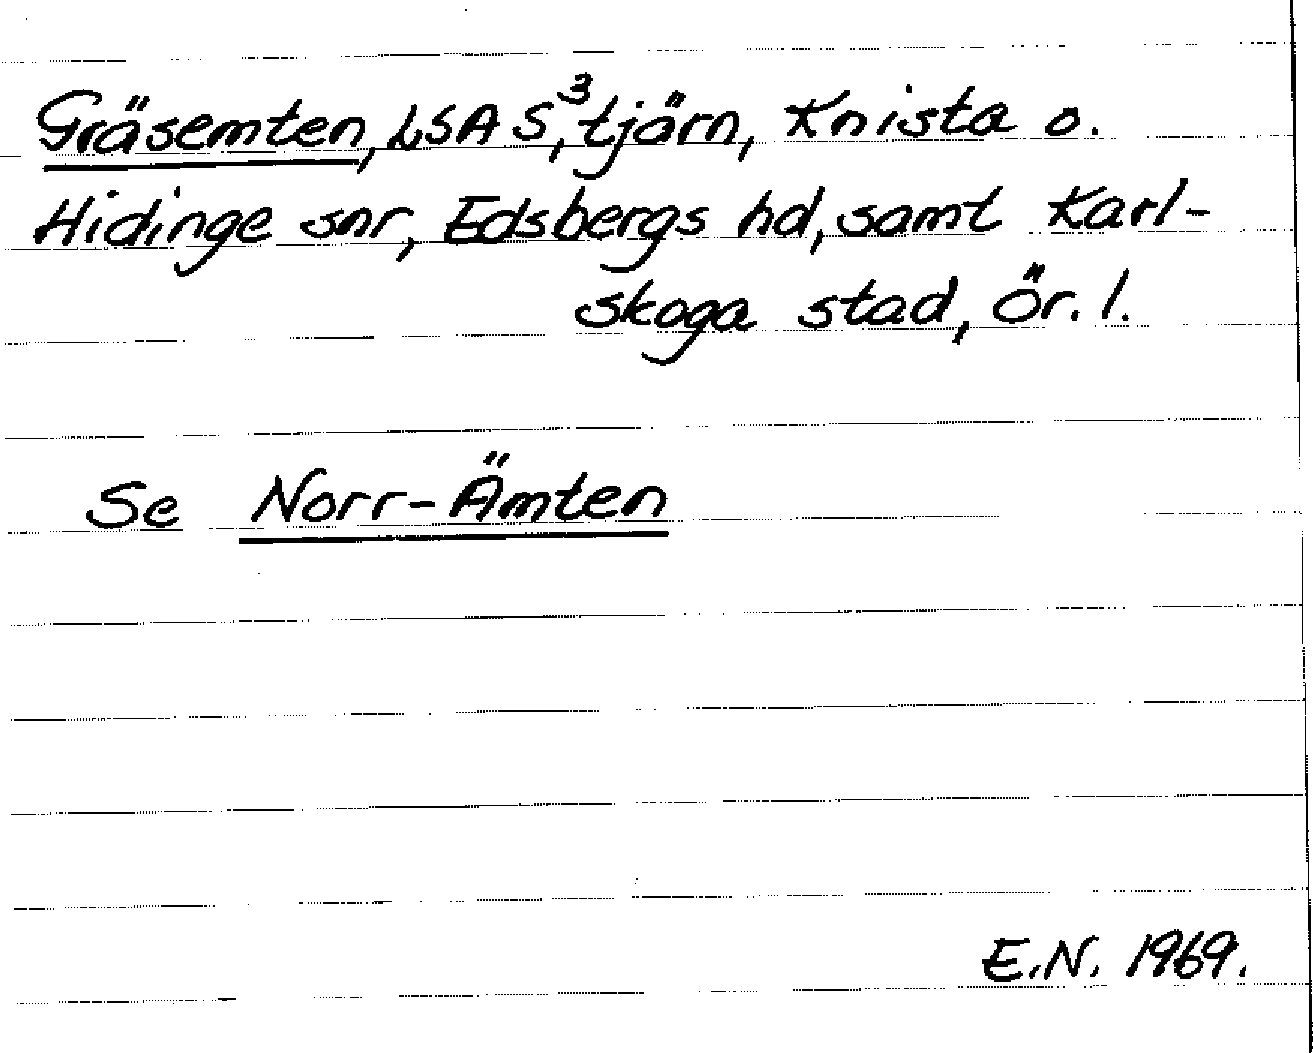 Gräsemten, LSA S³, tjärn, Knista o.
Hidinge snr, Edsbergs hd, samt Karl-
skoga stad, Ör. l.
Se Norr-Ämten
E.N. 1969.